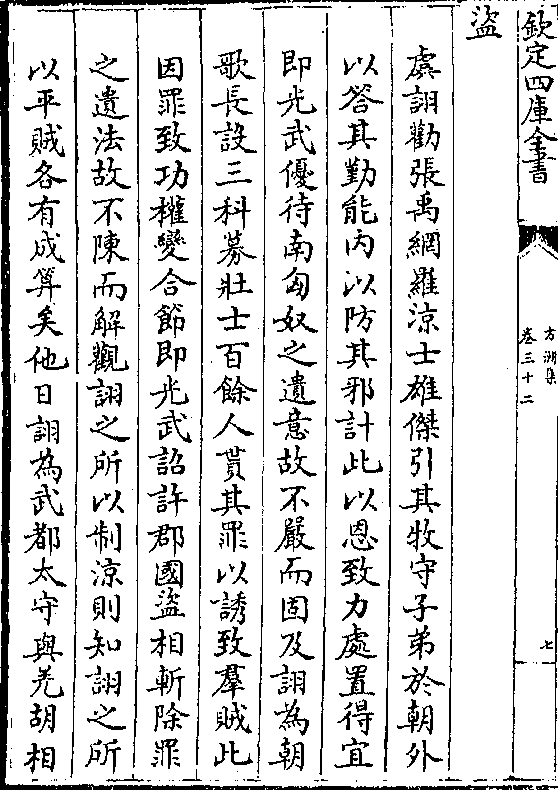 欽定四庫全書
方洲集
卷三十二
七
盜
虞詡勸張禹網羅涼士雄傑引其牧守子弟於朝外
以答其勤能内以防其邪計此以恩致力處置得宜
即光武優待南匈奴之遺意故不嚴而固及詡為朝
歌長設三科募壯士百餘人貰其罪以誘致羣賊此
因罪致功權變合節即光武詔許郡國盜相斬除罪
之遺法故不陳而解觀詡之所以制涼則知詡之所
以平賊各有成算矣他日詡為武都太守與羌胡相